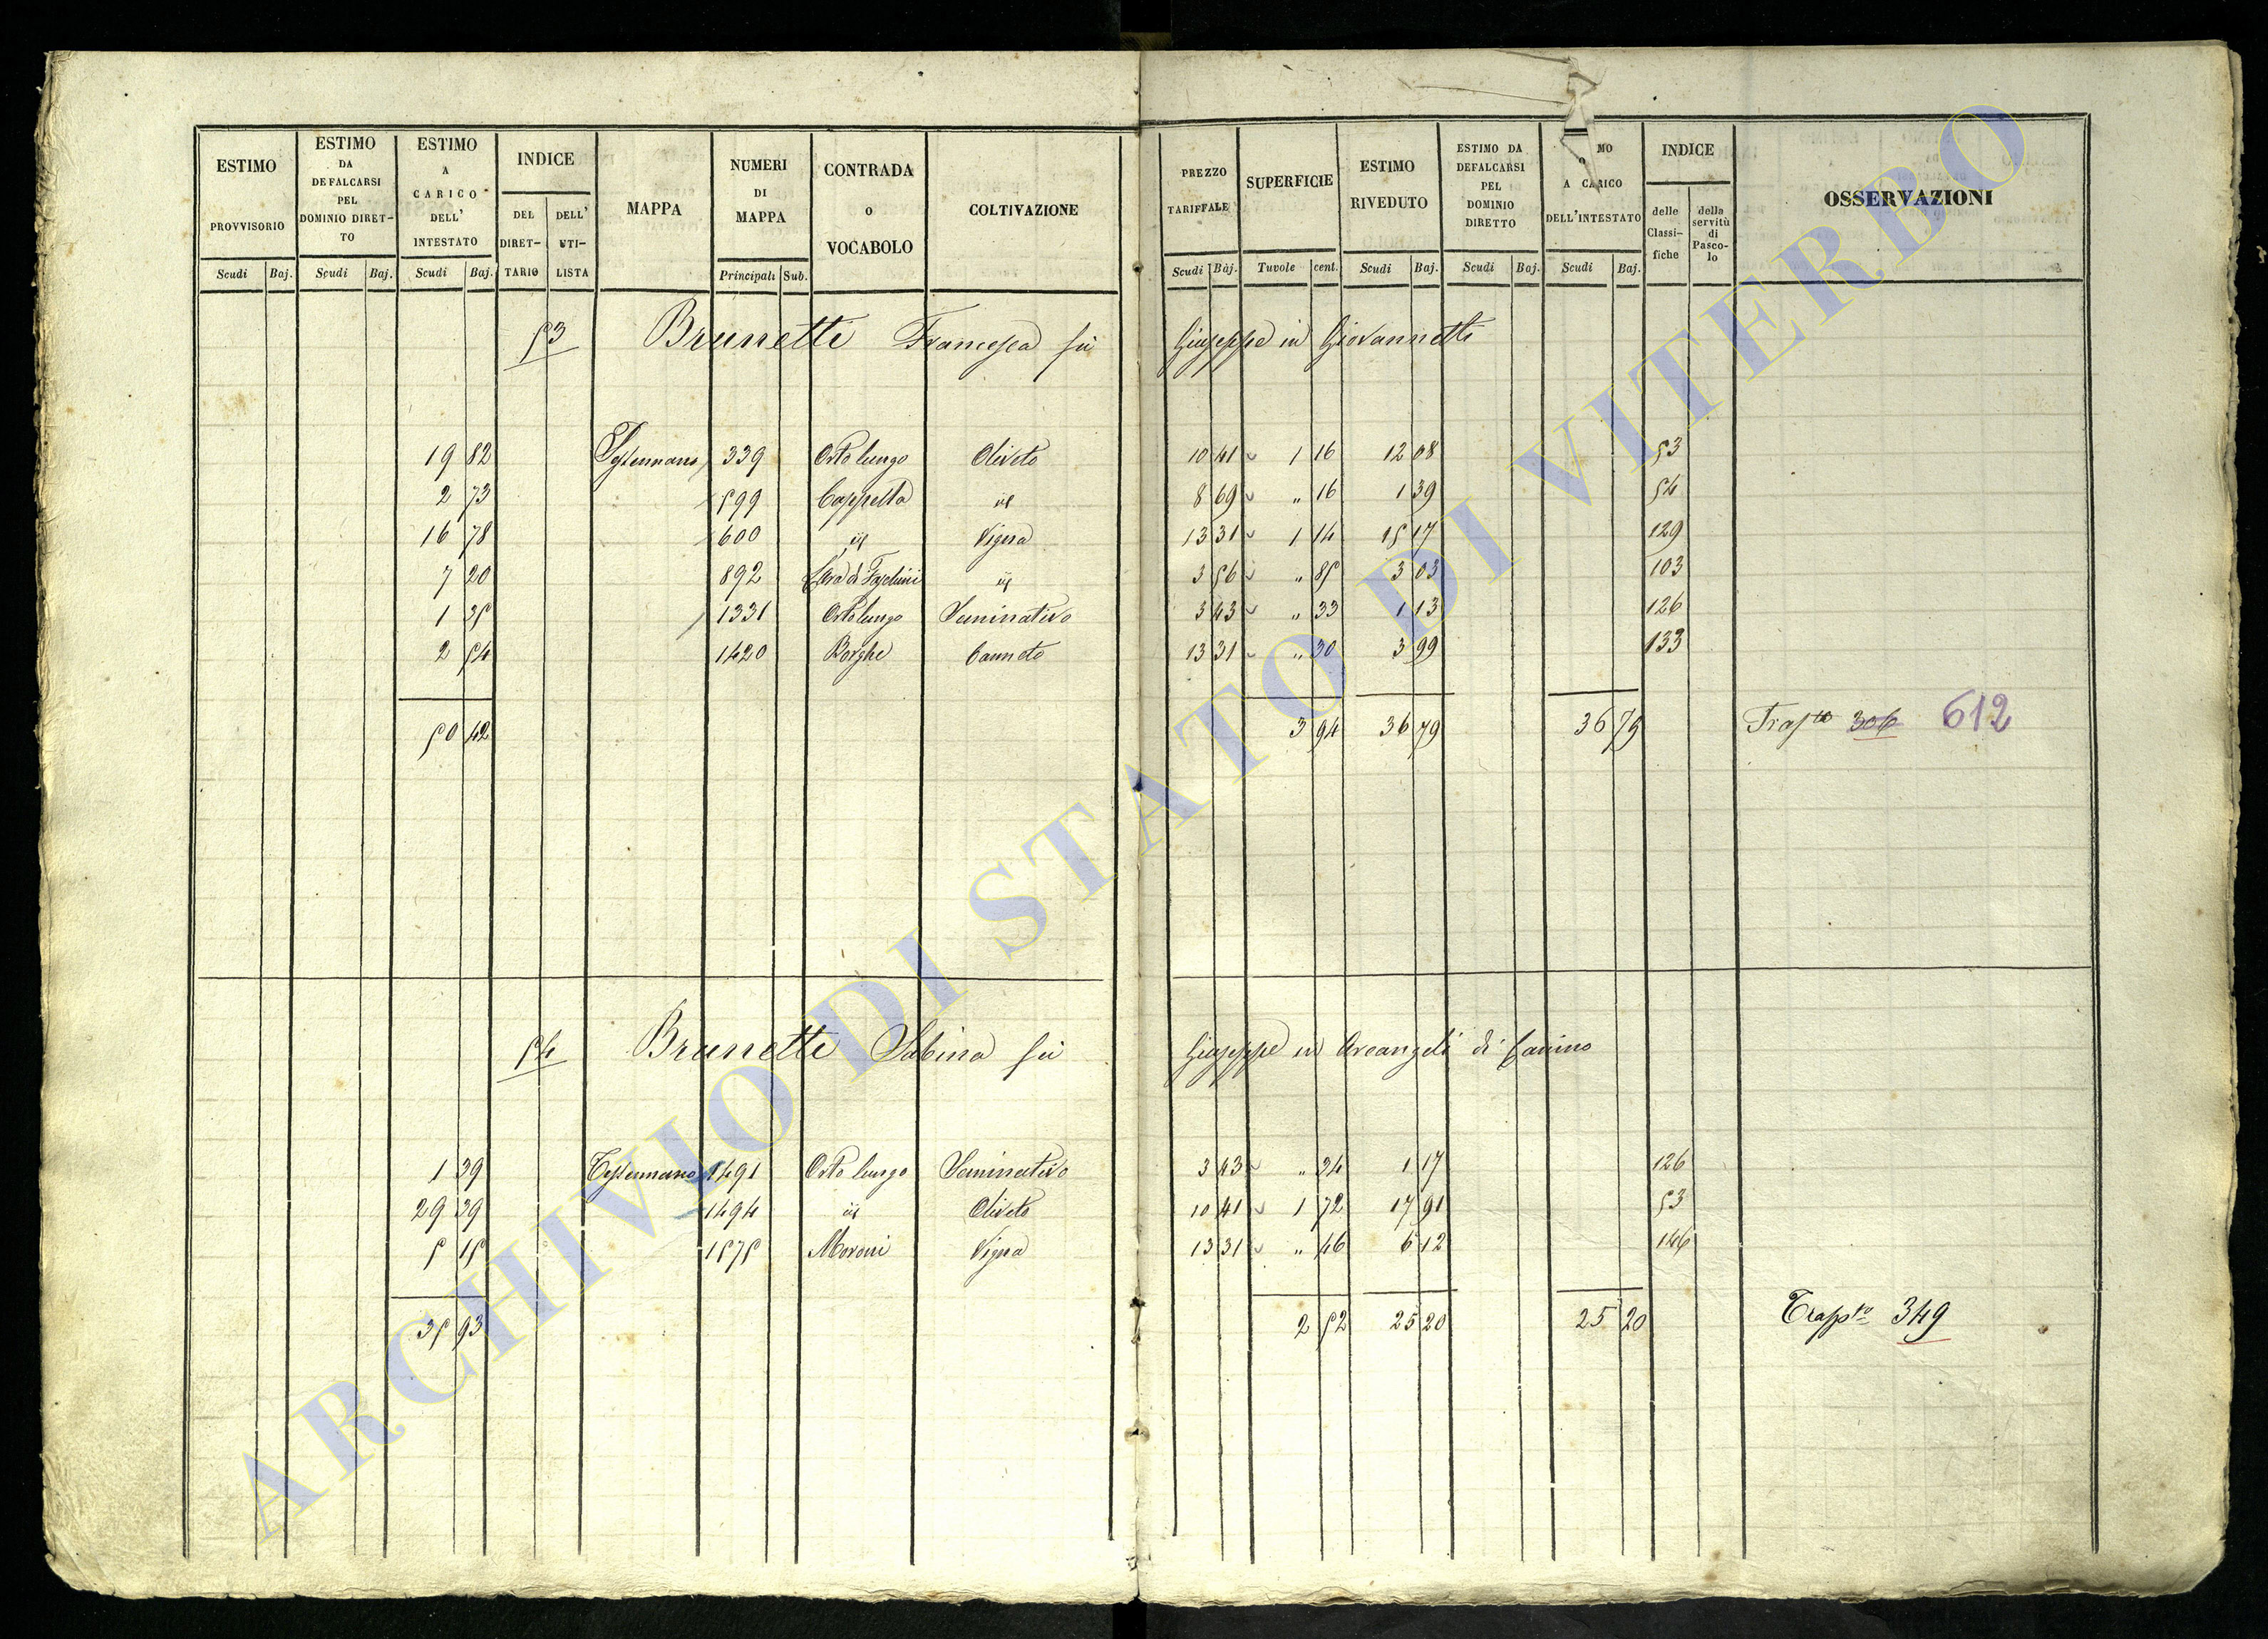 ESTIMO PROVVISORIO
Scudi Baj.
ESTIMO DA DEFALCARSI PEL DOMINIO DIRET-TO
Scudi Baj.
ESTIMO A CARICO DELL' INTESTATO
Scudi Baj.
INDICE
DEL DIRET-TARIO
DELL' UTI-LISTA
MAPPA
NUMERI DI MAPPA
Principali Sub.
CONTRADA O VOCABOLO
COLTIVAZIONE
PREZZO TARIFFALE
Scudi Baj.
SUPERFICIE
Tavole cent.
ESTIMO RIVEDUTO
Scudi Baj.
ESTIMO DA DEFALCARSI PEL DOMINIO DIRETTO
Scudi Baj.
MO A CARICO DELL'INTESTATO
Scudi Baj.
INDICE
delle Classi-fiche
della servitù di Pasco-lo
OSSERVAZIONI
53 Brunetti Francesca fu Giuseppe in Giovannetti
19 82 Tessennano 339 Orto lungo Oliveto 10 41 1 16 12 08 53
2 73 599 Cappelta id 8 69 " 16 1 39 54
16 78 600 id Vigna 13 31 1 14 15 17 129
7 20 892 id 3 56 " 85 3 03 103
1 35 1331 Orto lungo Seminativo 3 43 " 33 1 13 126
2 54 1420 Borghe Canneto 13 31 " 30 3 99 133
50 42 3 94 36 79 36 79 Trasp.to 306 612
54 Brunetti Sabina fu Giuseppe in Arcangeli di Canino
1 39 Tessennano 1491 Orto lungo Seminativo 3 43 " 34 1 17 126
29 39 1494 id Oliveto 10 41 1 72 17 91 53
5 15 1575 Moroni Vigna 13 31 " 46 6 12 146
35 93 2 52 25 20 25 20 Trasp.to 349
ARCHIVIO DI STATO DI VITERBO